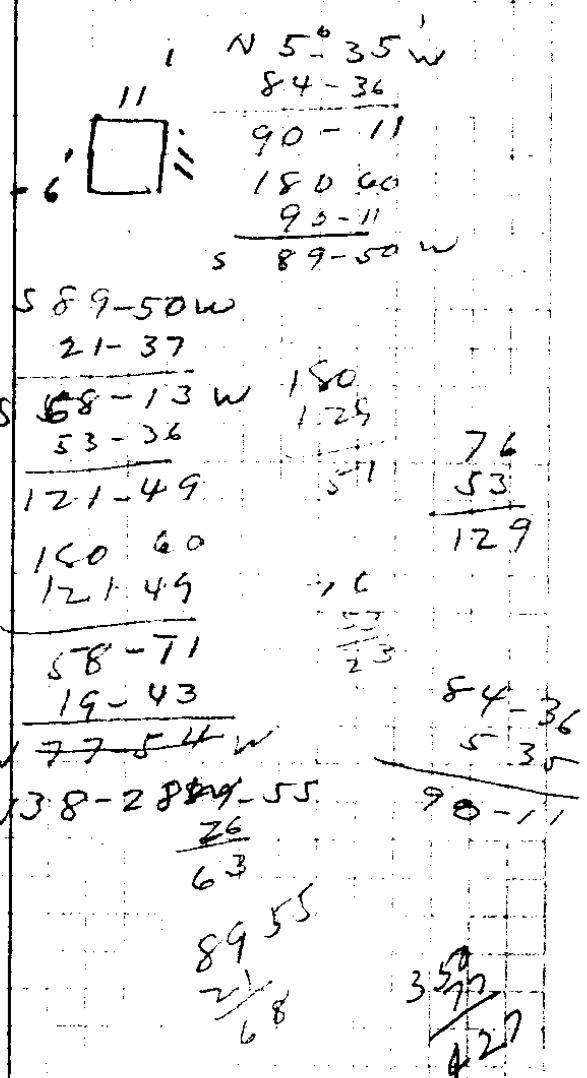 N 5° 35' W
84-36
90-11
180 60
90-11
S 89-50 W
11
6
S 89-50 W
21-37
S 68-13 W
53-36
121-49
180 60
121-49
58-71
19-43
77-54 W
38-28
-55
26
63
89 55
21
68
180
129
51
76
53
129
53
23
84-36
5 35
90-11
350
77
427